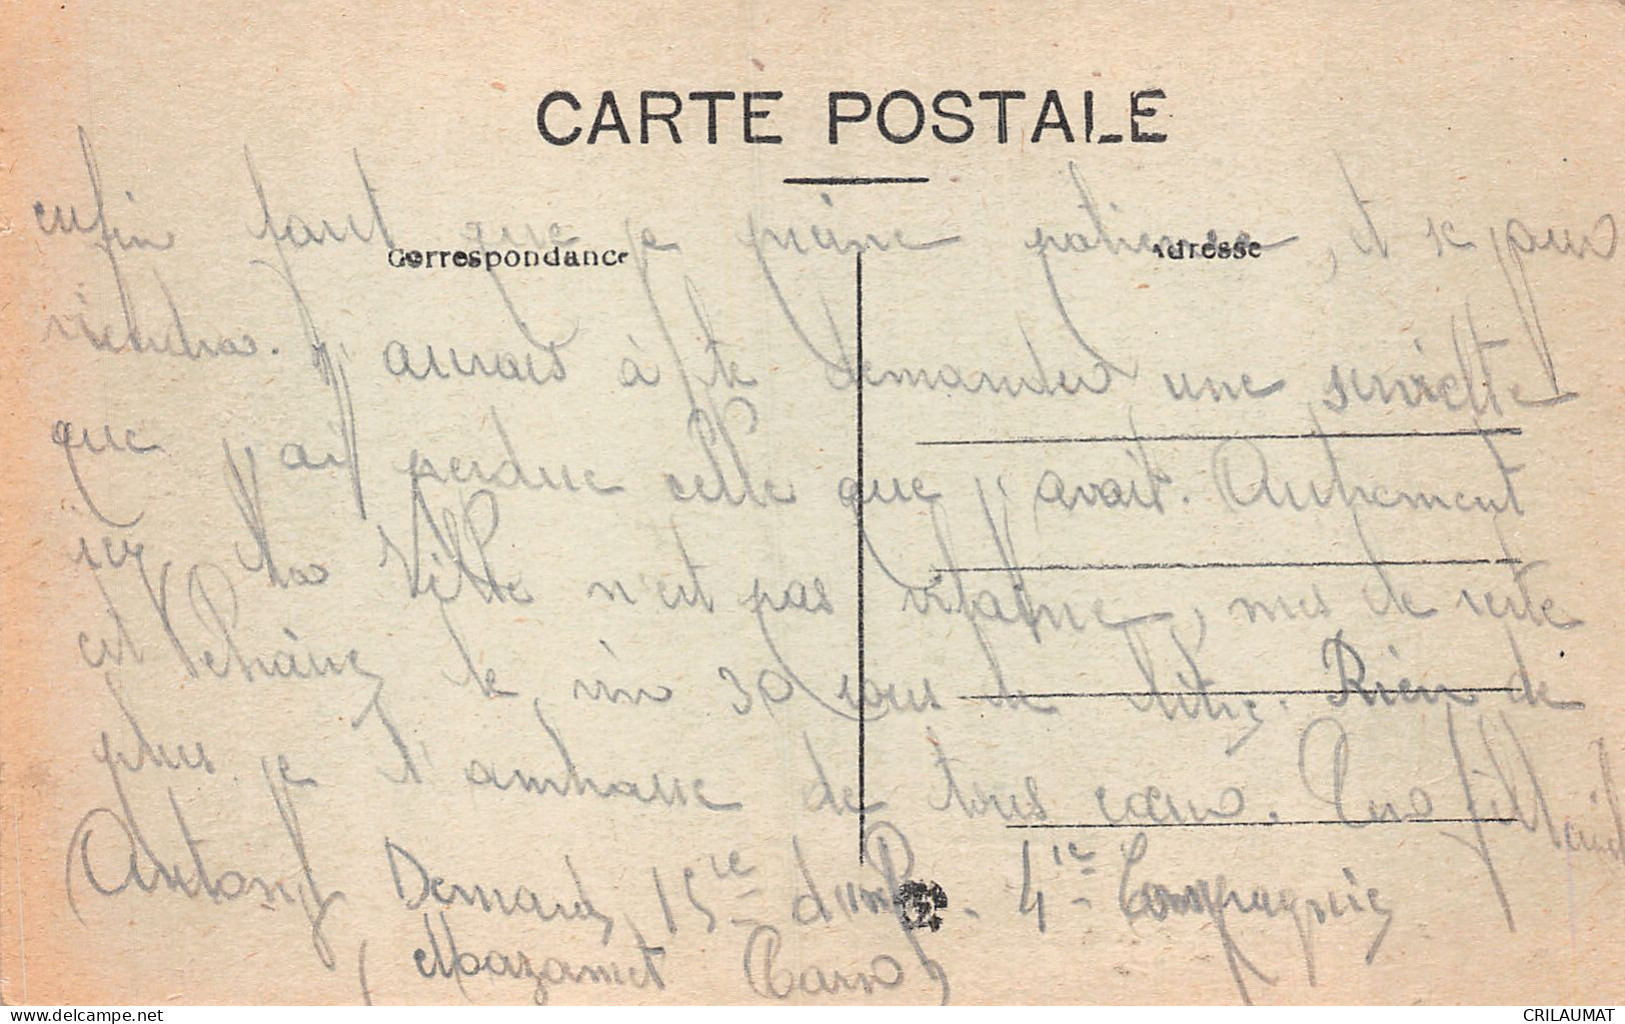 CARTE POSTALE
Correspondance
Adresse
enfin faut que je prène patience, et sa pas
viendra. J'aurais à te demander une serviette
que j'ait perdue celle que j'avait. Autrement
icy la Ville n'est pas vilaine, mes de reste
est le vin 30 sous le litre. Rien de
plus je t'ambrasse de tous cœur. Ton fils
Antony Demard 15ie du 4ie Compagnie
(Mazamet Tarn)
CRILAUMAT